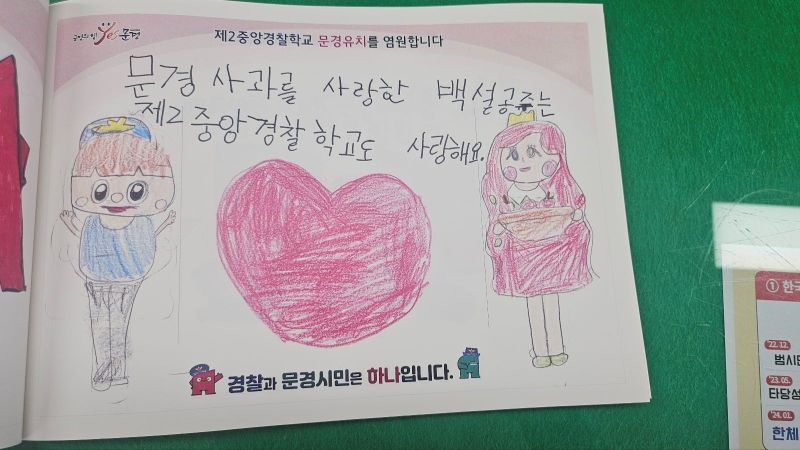 Yes 문경
제2중앙경찰학교 문경유치를 염원합니다
문경 사과를 사랑한 백설공쥬는
제2 중앙경찰학교도 사랑해요.
경찰과 문경시민은 하나입니다.
① 한국
'22. 12.
범시민
'23. 05.
타당성
'24. 01.
한체